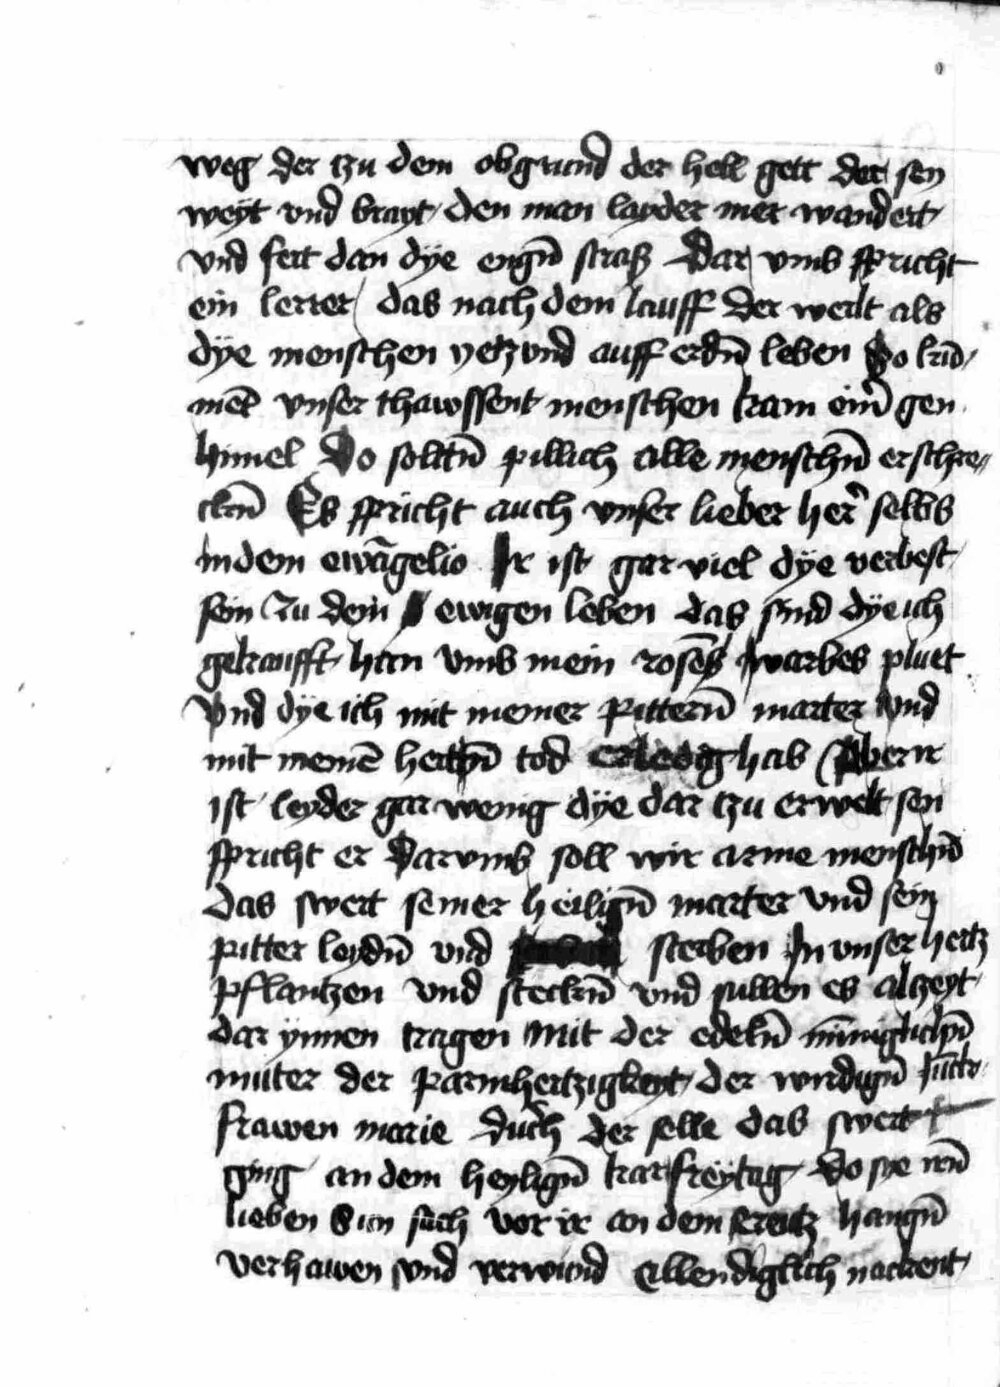 weg der tzu dem obgrund der hell gett der sey
weyt vnd brayt den man layder mer wandert
vnd fert dan dÿe engñ straß Dar vmb spricht
ein lerrer das nach dem lauff der werlt als
dÿe menschen yetzund auff erdñ leben So
vnser thawssent menschen kam einer gen
himel Do soltñ pillich alle menschñ erschre
ckñ Es spricht auch vnser lieber herr selbs
in dem ewãgelio Ir ist gar viel dÿe
sein zu dem ewigen leben das sind dÿe ich
gekaufft han vmb mein rosẽs varbes pluet
Vnd dÿe ich mit meiner pitterñ marter vnd
mit meinẽ hertñ tod erledigt hab Aber ir
ist leyder gar wenig dÿe dar tzu erwelt sen
spricht er Darvmb soll wir arme menschñ
das swert seiner heiligñ marter vnd sein
pitter leydñ vnd sterben In vnser hertz
pflantzen vnd steckñ vnd sullen es alzeyt
dar ynnen tragen Mit der edelñ
muter der parmhertzigkeyt der wirdigñ Junck
frawen marie durch der selle das swert
ging an dem heyligñ karfreÿtag Do sye irñ
lieben Sun sach vor ir an dem kreutz hangñ
verhawen vnd verwund Ellendiglich nackent